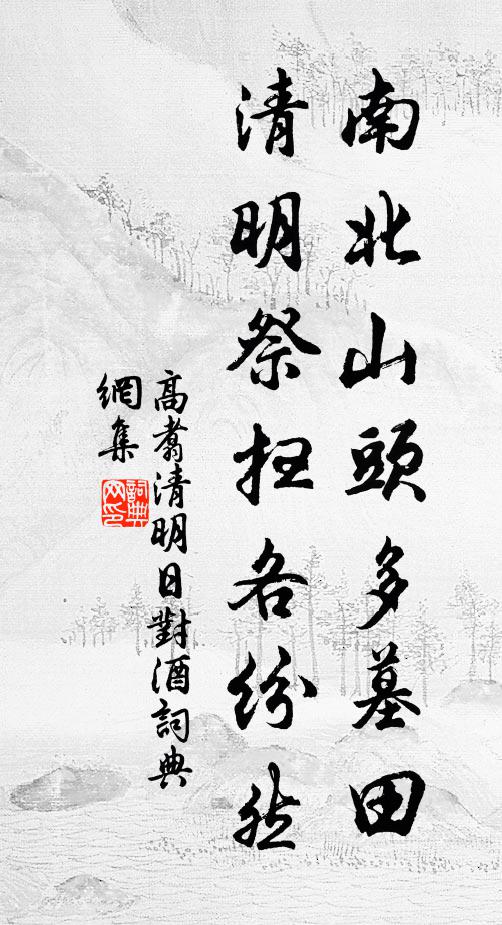 南北山頭多墓田
清明祭扫各紛然
高翥清明日對酒詞典
網集
詞典
网印